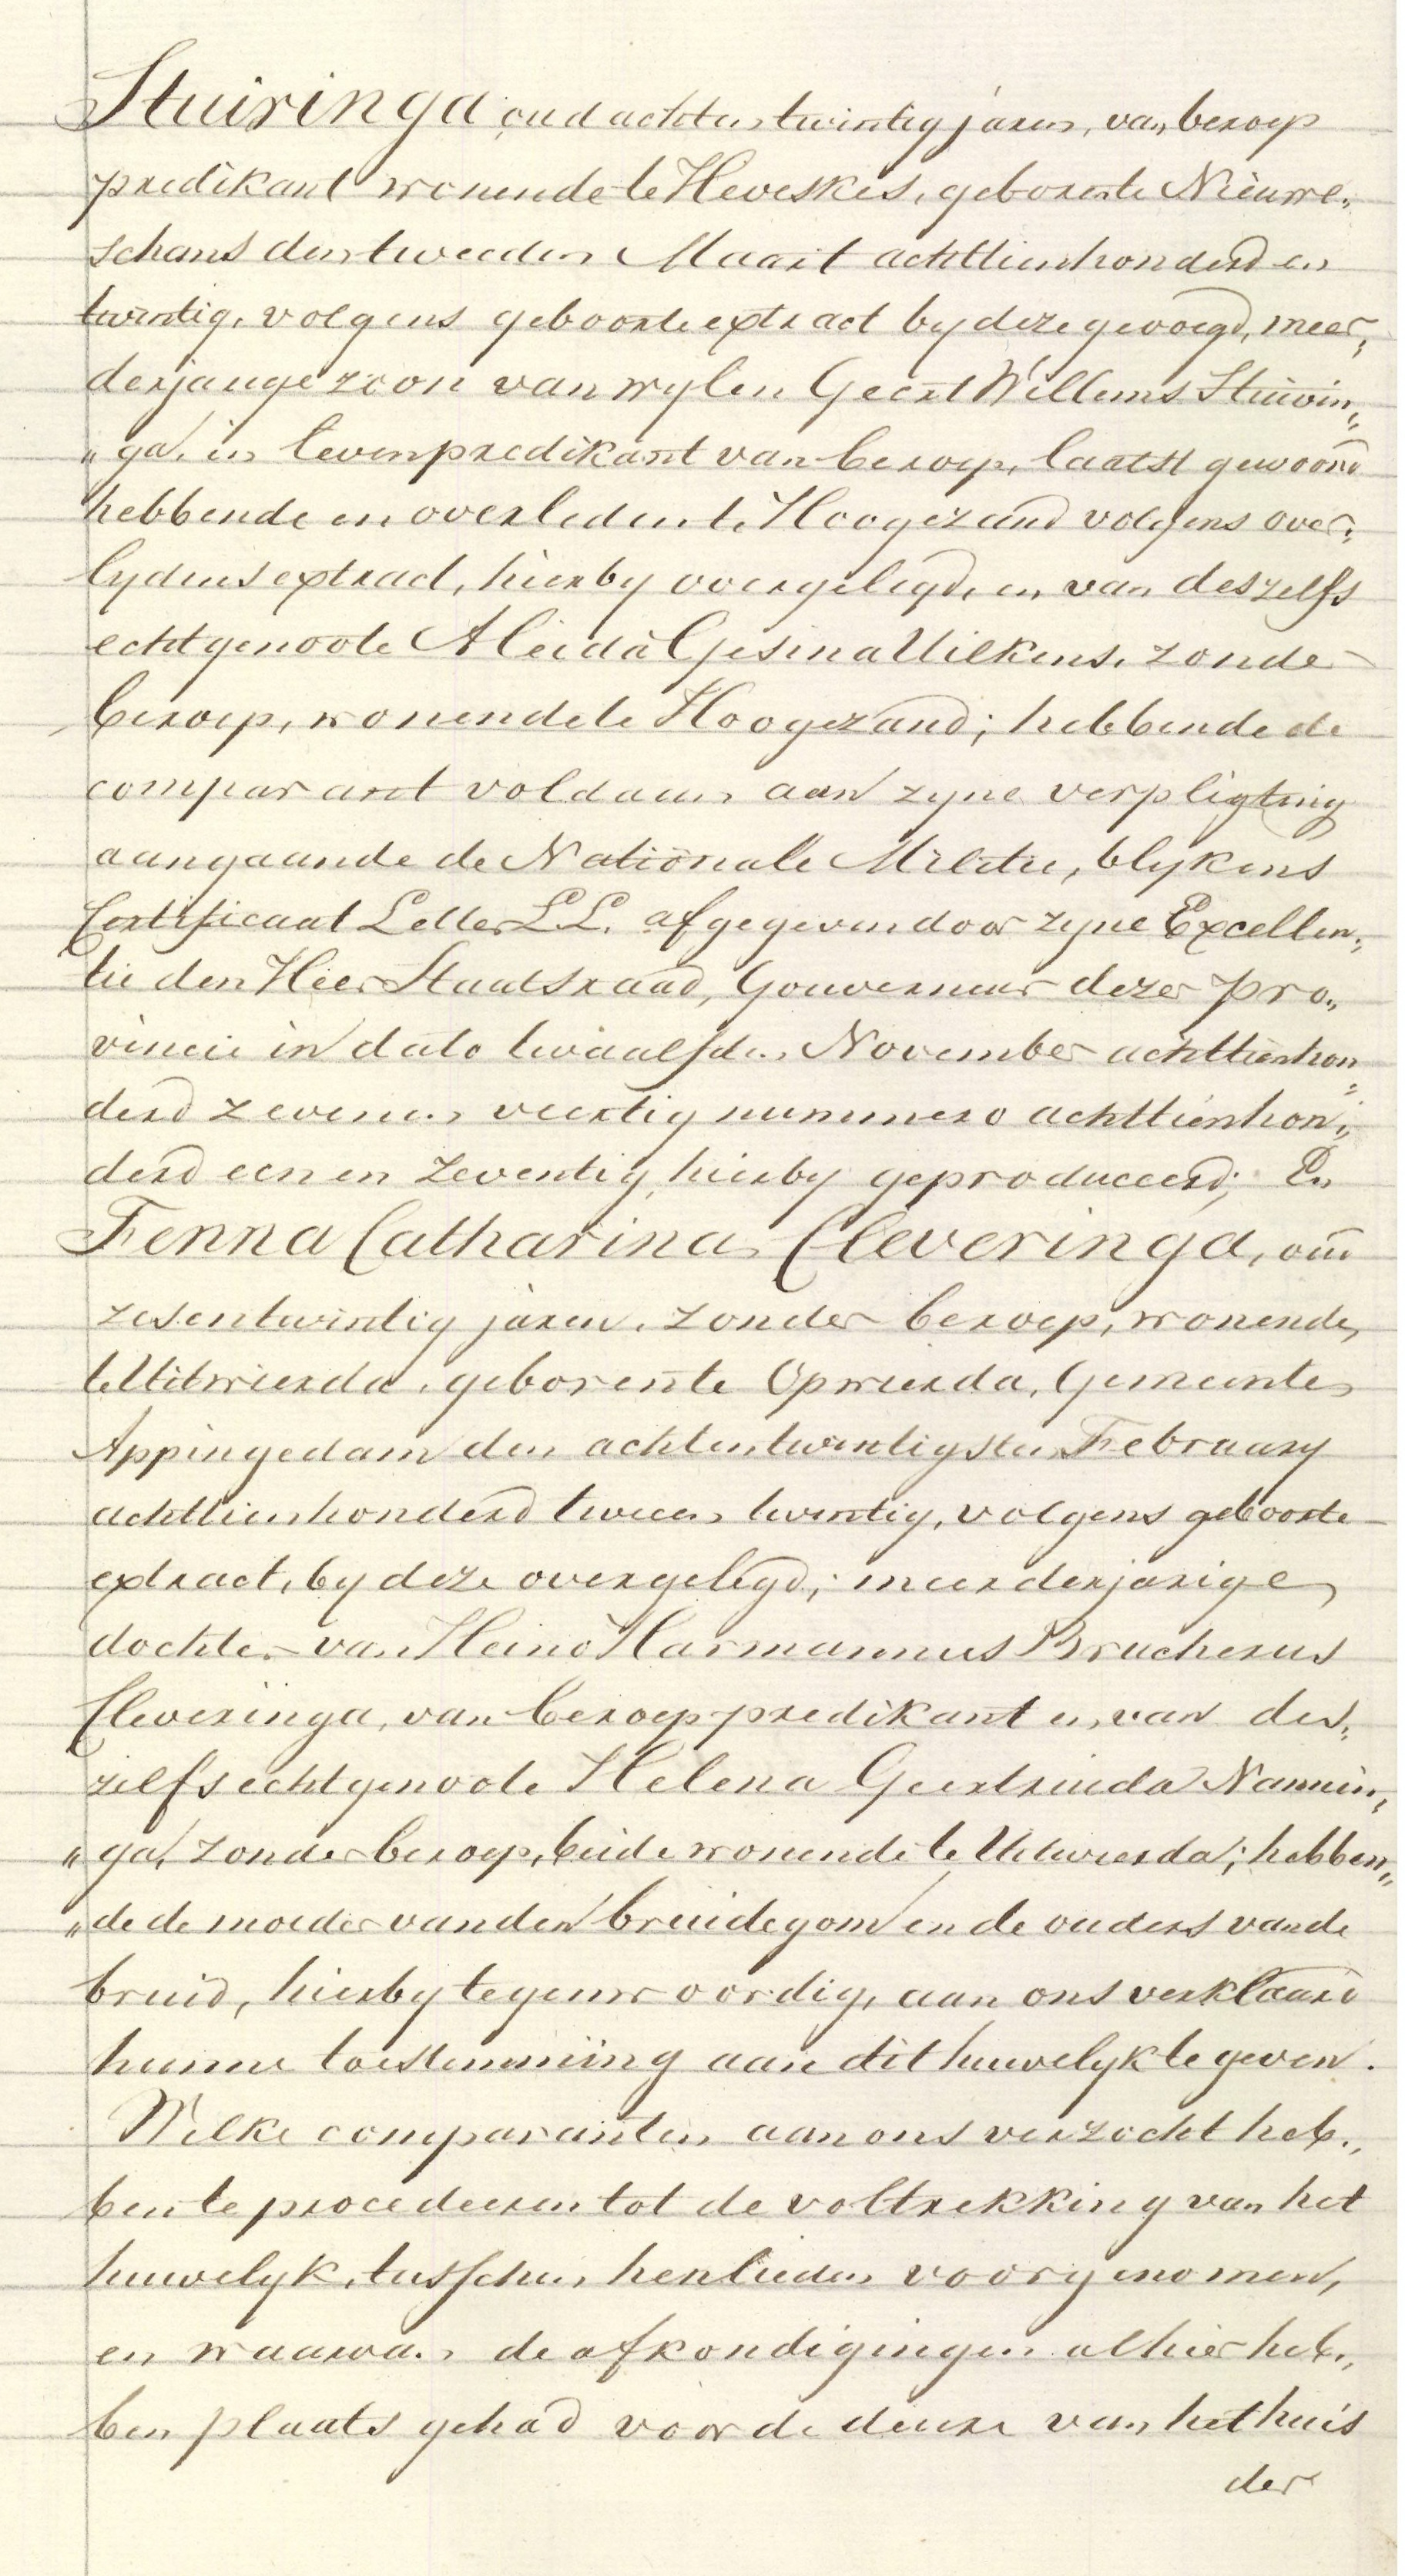 Stuivinga, oud achtentwintig jaren, van beroep
predikant wonende te Heveskes, geboren te Nieuwe„
schans den tweeden Maart achttienhonderd en
twintig, volgens geboorte extract by deze gevoegd, meer„
derjarige zoon van wylen Geert Willems Stuivin„
„ga, in leven predikant van beroep, laatst gewoond
hebbende en overleden te Hoogezand volgens over„
lydens extract, hierby overgelegd, en van deszelfs
echtgenoote Aleida Gesina Uilkens, zonder
beroep, wonende te Hoogezand; hebbende de
comparant voldaan aan zyne verpligting
aangaande de Nationale Militie, blykens
Certificaat Letter LL. afgegeven door zyne Excellen„
tie den Heer Staatsraad, Gouverneur dezer pro„
vincie in dato twaalfden November achttienhon„
derd zeven en veertig nummero achttienhon„
derd een en zeventig, hierby geproduceerd; En
Fenna Catharina Cleveringa, oud
zesentwintig jaren, zonder beroep, wonende
te Uitwierda, geboren te Opwierda, Gemeente
Appingedam den achtentwintigsten February
achttienhonderd tweeen twintig, volgens geboorte
extract, by deze overgelegd; meerderjarige
dochter van Heino Harmannus Brucherus
Cleveringa, van beroep predikant en van des„
zelfs echtgenoote Helena Geertruida Nannin„
„ga, zonder beroep, beide wonende te Uitwierda; hebben„
„de de moeder van den bruidegom en de ouders van de
bruid, hierby tegenwoordig, aan ons verklaard
hunne toestemming aan dit huwelyk te geven.
Welke comparanten aan ons verzocht heb„
ben te procedeeren tot de voltrekking van het
huwelyk, tusschen henlieden voorgenomen,
en waarvan de afkondigingen alhier heb„
ben plaats gehad voor de deure van het huis
der